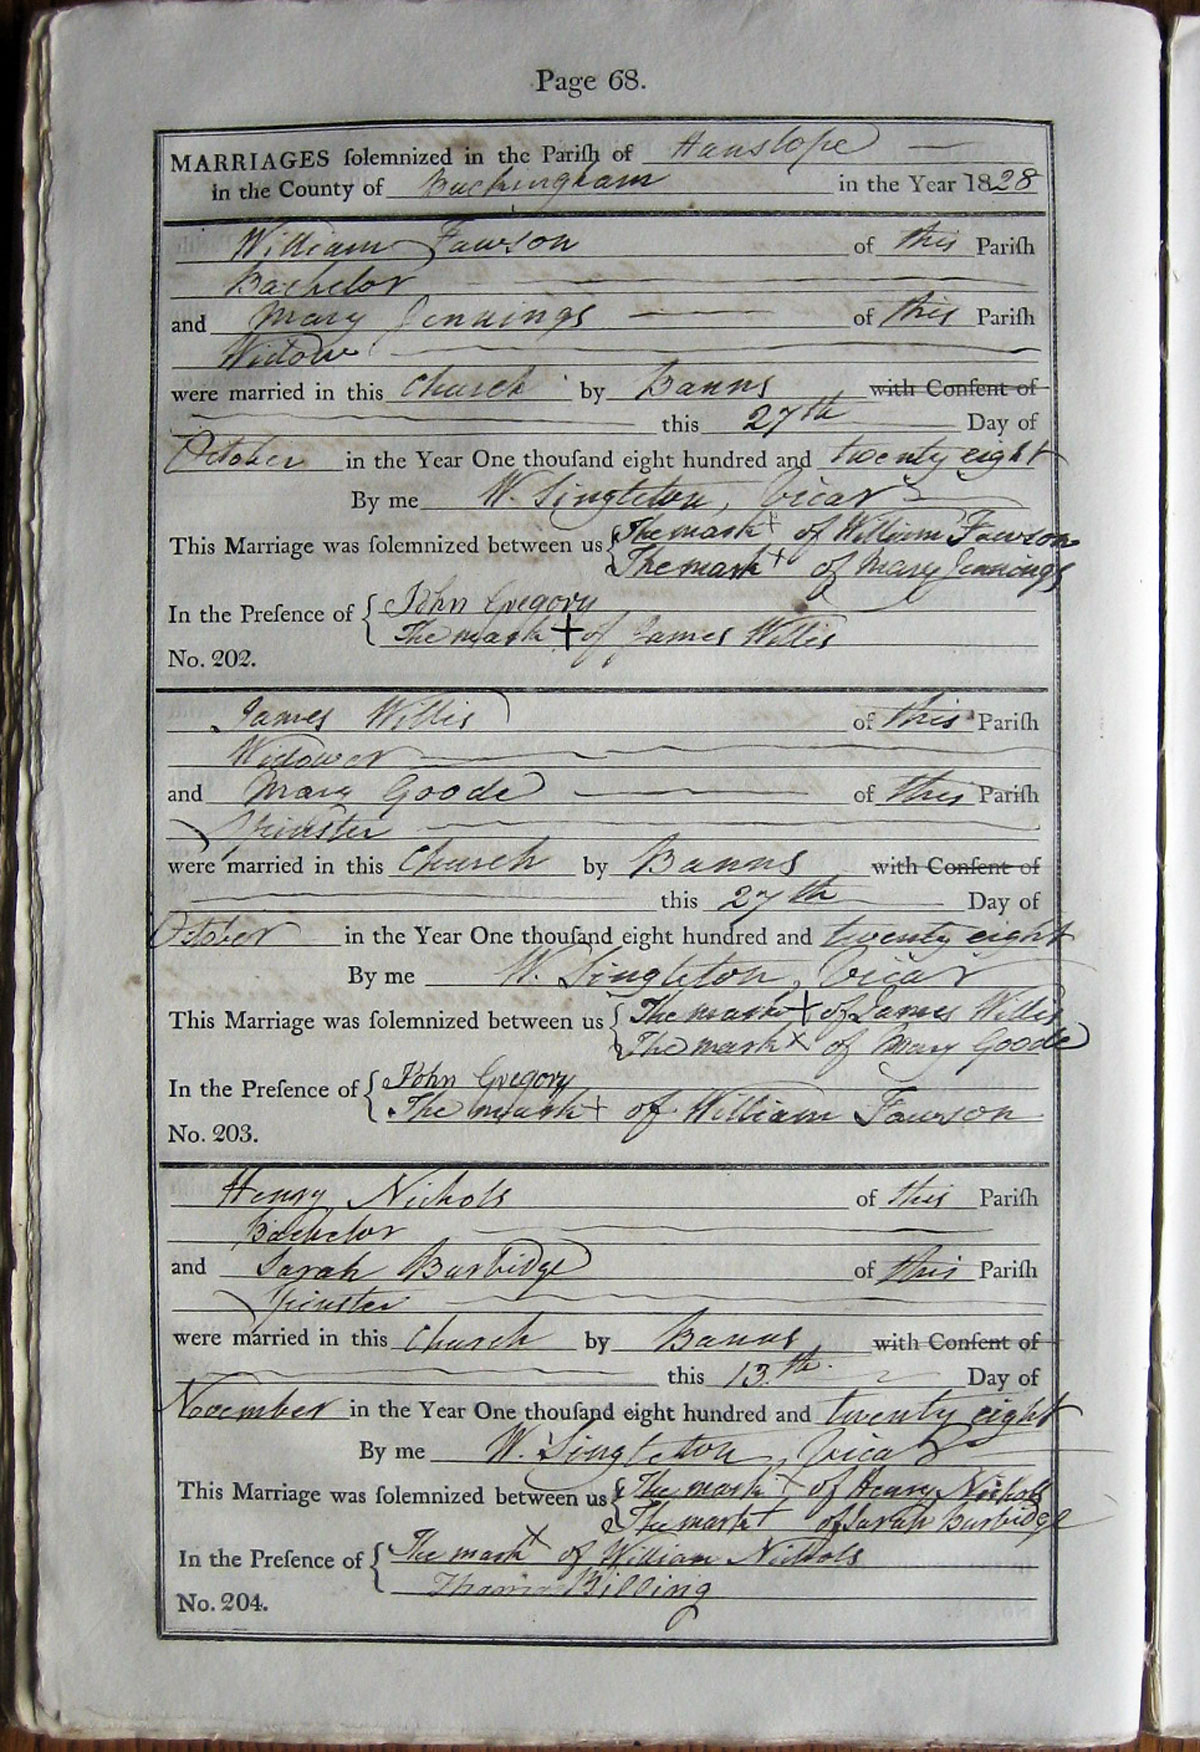 Page 68.
MARRIAGES ſolemnized in the Pariſh of Hanslope
in the County of Buckingham in the Year 1828
William Fawson of this Pariſh
Bachelor
and Mary Jennings of this Pariſh
Widow
were married in this Church by Banns with Conſent of
this 27th Day of
October in the Year One thouſand eight hundred and twenty eight
By me W. Singleton, Vicar
This Marriage was ſolemnized between us { The mark + of William Fawson
The mark + of Mary Jennings
In the Preſence of { John Gregory
The mark + of James Willis
No. 202.
James Willis of this Pariſh
Widower
and Mary Goode of this Pariſh
Spinster
were married in this Church by Banns with Conſent of
this 27th Day of
October in the Year One thouſand eight hundred and twenty eight
By me W. Singleton, Vicar
This Marriage was ſolemnized between us { The mark + of James Willis
The mark x of Mary Goode
In the Preſence of { John Gregory
The mark + of William Fawson
No. 203.
Henry Nichols of this Pariſh
Bachelor
and Sarah Burbidge of this Pariſh
Spinster
were married in this Church by Banns with Conſent of
this 13.th Day of
November in the Year One thouſand eight hundred and twenty eight
By me W. Singleton, Vicar
This Marriage was ſolemnized between us { The mark + of Henry Nichols
The mark + of Sarah Burbidge
In the Preſence of { The mark x of William Nichols
Thomas Billing
No. 204.